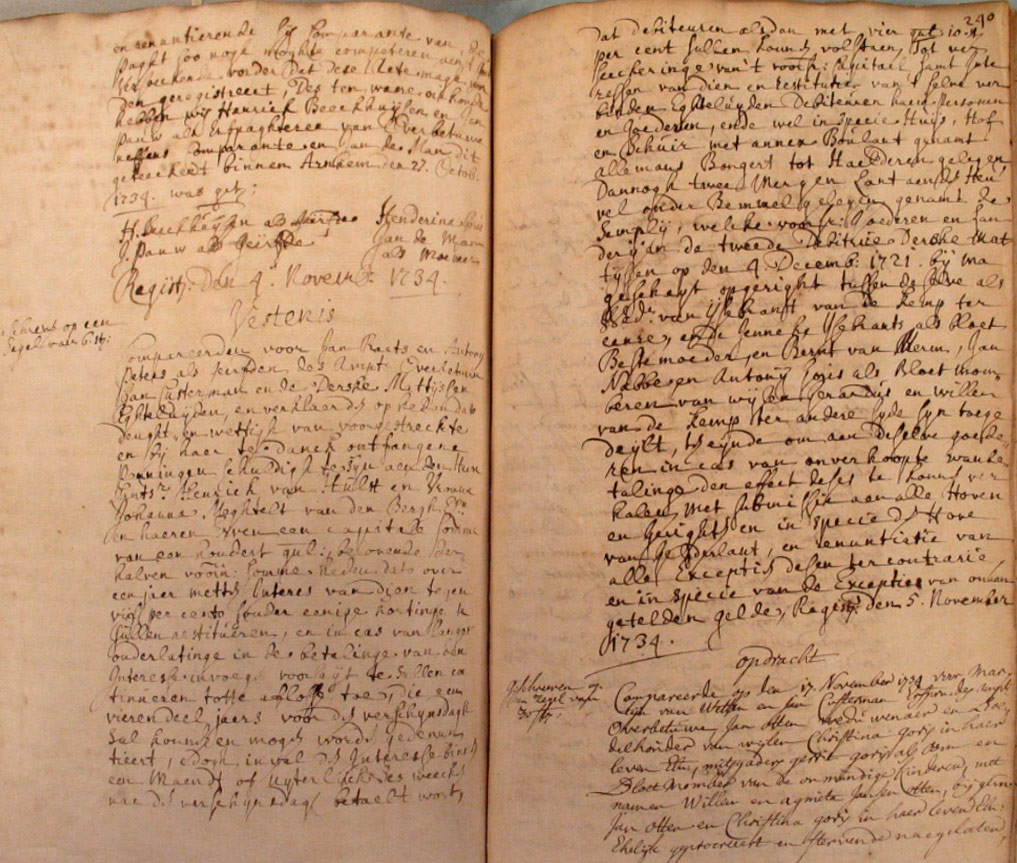 en renuntierende sij Comparante van de
paght soo nogh moghte competeren
versoekende vorder dat dese acte mage wor
den geregistreert, Des ten ware oirkonde
hebben wij Henrick Beeckhuijsen en Jan
Pauw als Erfpaghteren van Overbetuwe
neffens Comparante en Jan de Man dit
geteeckent binnen Arnhem den 27. Octob:
1734. was get:
H. Beeckhuijsen als
J. Pauw als
Henderina
Jan de Man
als Momber
Regist: den 4 Novemb: 1734.
Vestenis
op een
Segel van 6 st:
Compareerden voor Jan Raets en Antony
Peters als gerfden des Ampt Overbetuwe
Jan Custerman en de Derske Mattijssen
Eghteluijden, en verklaerde op reden dat
deught en wettigh van voorgestreckte
en bij haer te danck ontfangene
Penningen schuldigh te sijn aen den
Henrick van Hulst en Vrouw
Johanna Meghtelt van den Bergh
en haeren Erven een Capitale Somme
van een hondert gul: belovende der
halven voorn: Somme heden dato over
een jaer mette Interes van dien tegen
vijf per cento sonder eenige kortinge te
sullen restitueren, en in cas van langer
onderlatinge in de betalinge van den
Interesse invoegh voorsijt te sullen con
tinueren totte aflosse toe, die een
vierendeel jaers voor de verschijndagh
sal konnen en mogen worde gedenun
tieert, edogh inval de Interesse binne
een Maendt of uijterlijck ses weeks
nae de verschijnsdagh betaelt wort,
240
dat debiteuren alsdan met vier gul: 10 st.
per cent sullen konne volstaen, Tot ver
seeckeringe van't voorn: Capitael samt Inte
ressen van dien en restitutie van 't selve ver
binden Eghteluijden Debiteuren haere Persoonen
en goederen, ende wel in specie Huijs, Hof
en Schuir met annex Boulant genamt
allemans Bongert tot Haelderen gelegen
Dannogh twee Mergen Lant aen de Heu
vel onder Bemmel gelegen genamt de
Semplij, welke voors: goederen en Lan
derijen de tweede debitrice Derske Mat
tijssen op den 4. Decemb: 1721. bij ma
gescheijt opgeright tussen deselve als
Wed: van IJsebrant van de Kemp ter
eenre, ende Jenneke IJsebrants als bloet
Bestemoeder en Bernt van Merm, Jan
Nebbe en Antonij Goris als Bloet mom
beren van wijlen Gerardus en Willem
van de Kemp ter andere sijde sijn toege
deijlt, teijnde om aen deselve goede
ren in cas van onverhoopte wanbe
talinge den effect deses te konne ver
halen, met submissie aen alle Hoven
en Gerights en in specie de Hove
van Gelderlant, en renuntiatie van
alle Exceptie desen ter contrarie
en in specie van de Exceptie van onaen
getelden gelde, Regist: den 5. November
1734.
Opdracht
Geschreven op
een zegel van
30 st:
Compareerde op den 17. November 1734 voor Mar
ten van Willen en Jan Custerman Erfgen: des Ampts
Overbetuwe Jan Otten weduwenaer en Boe
delhouder van wijlen Christina Goris in haer
leven Etu, mitsgaders Gerrit Goris als Oom en
Bloet Momber van de onmundige kinderen, met
namen Willem en Agnieta Jansen Otten, bij
Jan Otten en Christina Goris in haer leven Ede:
Ehelijk geprocreert en stervende naegelaten,